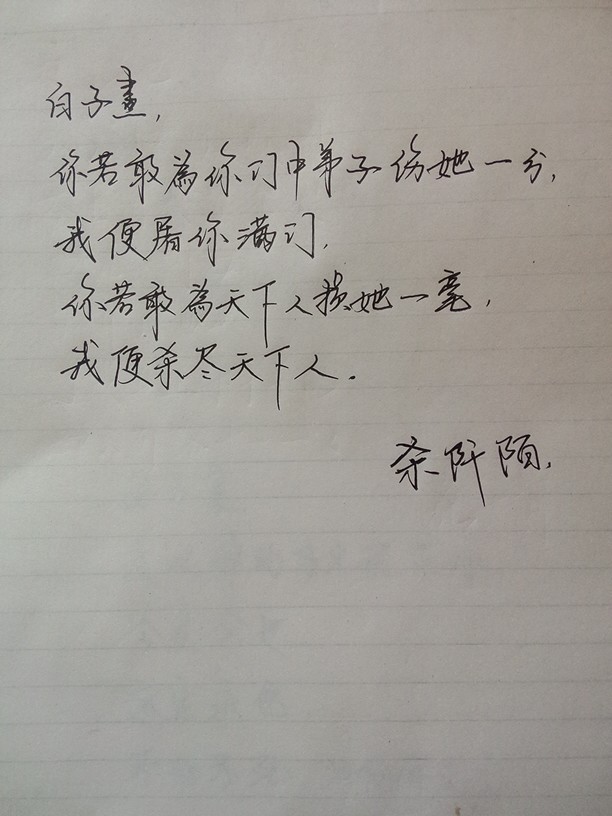 白子畫,
你若敢為你门中弟子伤她一分,
我便屠你满门,
你若敢為天下人损她一毫,
我便杀尽天下人.
杀阡陌.